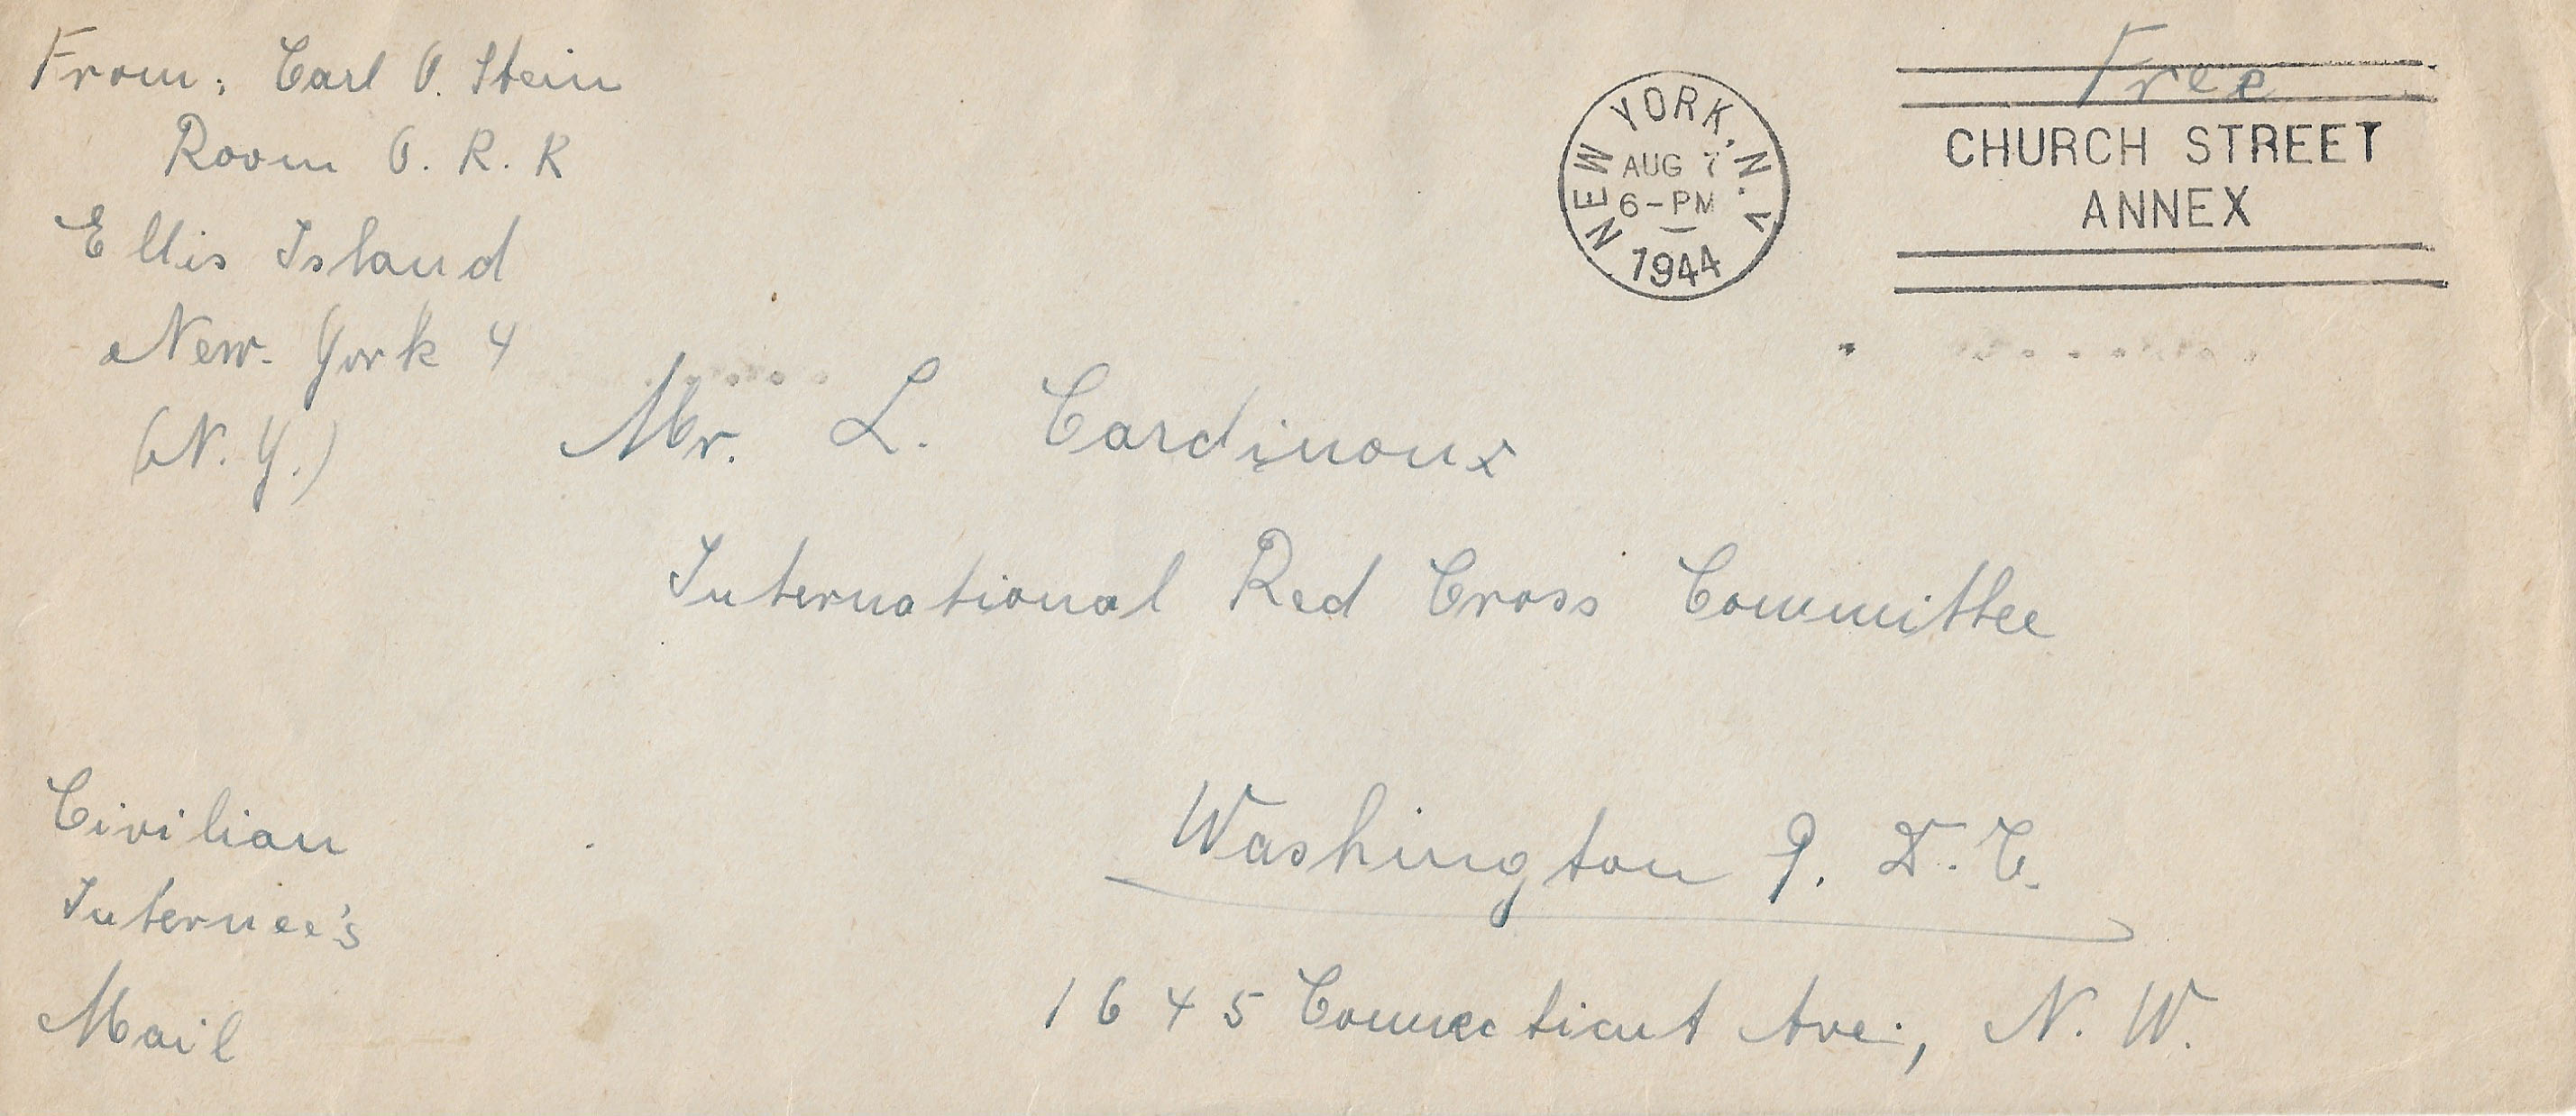 From: Carl O. Stein
Room O. R. R
Ellis Island
New-York 4
(N. Y.)
Free
NEW YORK, N.Y.
AUG 7
6-PM
1944
CHURCH STREET
ANNEX
Mr. L. Cardinoux
International Red Cross Committee
Washington 9. D. C.
1645 Connecticut Ave., N. W.
Civilian
Internee's
Mail